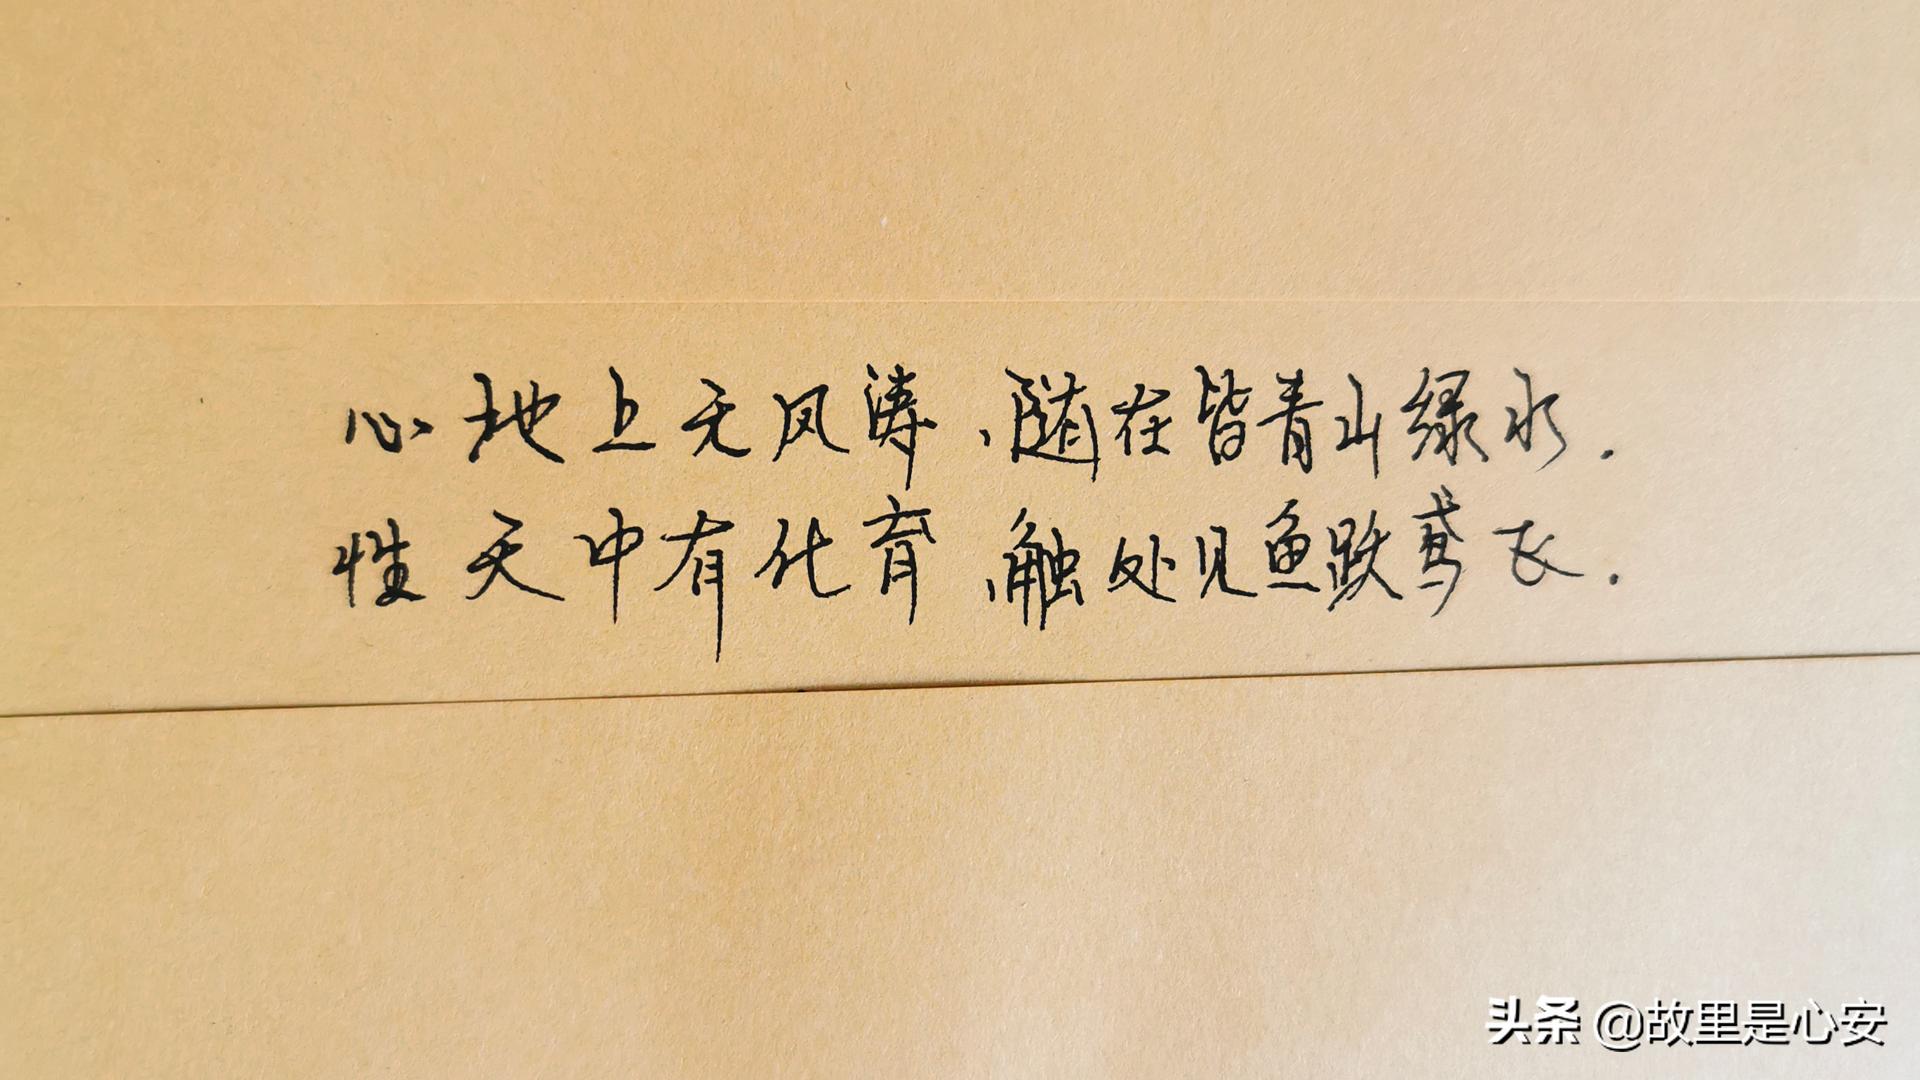 心地上无风涛、随在皆青山绿水.
性天中有化育、触处见鱼跃鸢飞.
头条 @故里是心安